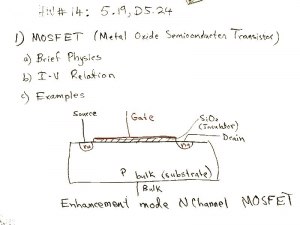 HW# 14: 5.19, D5.24
1) MOSFET (Metal Oxide Semiconductor Transistor)
a) Brief Physics
b) I-V Relation
c) Examples
Source
Gate
SiO2
(Insulator)
Drain
n+
n+
P bulk (substrate)
Bulk
Enhancement mode N Channel MOSFET